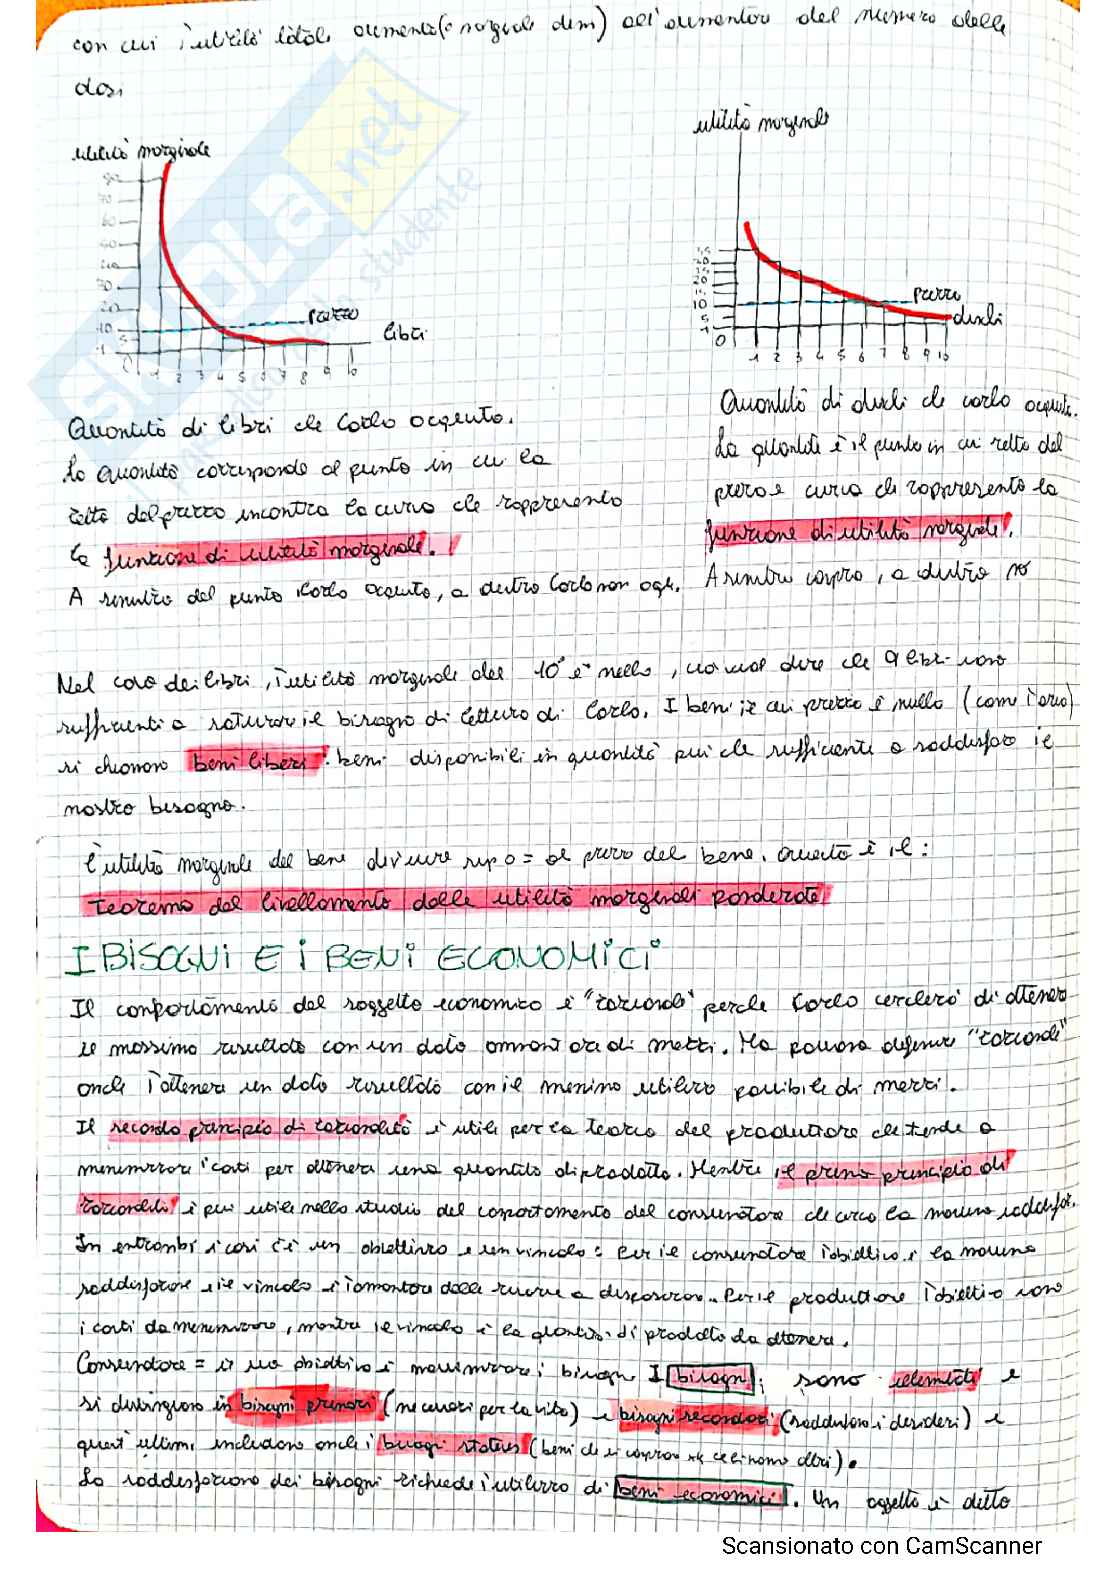 con cui l'utilità totale aumenta (o marginale dim) all'aumentar del numero delle
dosi
utilità marginale
prezzo
libri
0 1 2 3 4 5 6 7 8 9 10
utilità marginale
prezzo
dischi
0 1 2 3 4 5 6 7 8 9 10
Quantità di libri che Carlo acquista.
La quantità corrisponde al punto in cui la
retta del prezzo incontra la curva che rappresenta
la funzione di utilità marginale.
A sinistra del punto Carlo acquista, a destra Carlo non acq.
Quantità di dischi che Carlo acquista.
La quantità è il punto in cui retta del
prezzo e curva che rappresenta la
funzione di utilità marginale.
A sinistra compra, a destra no
Nel caso dei libri, l'utilità marginale del 10° è nulla, ciò vuol dire che 9 libri sono
sufficienti a saturare il bisogno di lettura di Carlo. I beni il cui prezzo è nullo (come l'aria)
si chiamano beni liberi: beni disponibili in quantità più che sufficiente a soddisfare il
nostro bisogno.
L'utilità marginale del bene divisore sup o = al prezzo del bene. Questo è il:
teorema del livellamento delle utilità marginali ponderate
I BISOGNI E I BENI ECONOMICI
Il comportamento del soggetto economico è "razionale" perché Carlo cercherà di ottenere
il massimo risultato con un dato ammontare di mezzi. Ma possono definire "razionale"
anche l'ottenere un dato risultato con il minimo utilizzo possibile di mezzi.
Il secondo principio di razionalità è utile per la teoria del produttore che tende a
minimizzare i costi per ottenere una quantità di prodotto. Mentre il primo principio di
razionalità è più utile nello studio del comportamento del consumatore che cerca la massima soddisfaz.
In entrambi i casi c'è un obiettivo e un vincolo: Per il consumatore l'obiettivo è la massima
soddisfazione e il vincolo è l'ammontare delle risorse a disposizione. Per il produttore l'obiettivo sono
i costi da minimizzare, mentre il vincolo è la quantità di prodotto da ottenere.
Consumatore = il suo obiettivo è massimizzare i bisogni. I bisogni: sono illimitati e
si distinguono in bisogni primari (necessari per la vita) e bisogni secondari (soddisfano i desideri) e
quest'ultimi includono anche i bisogni status (beni che si comprano xk ce li hanno altri).
La soddisfazione dei bisogni richiede l'utilizzo di beni economici. Un oggetto è detto
Scansionato con CamScanner